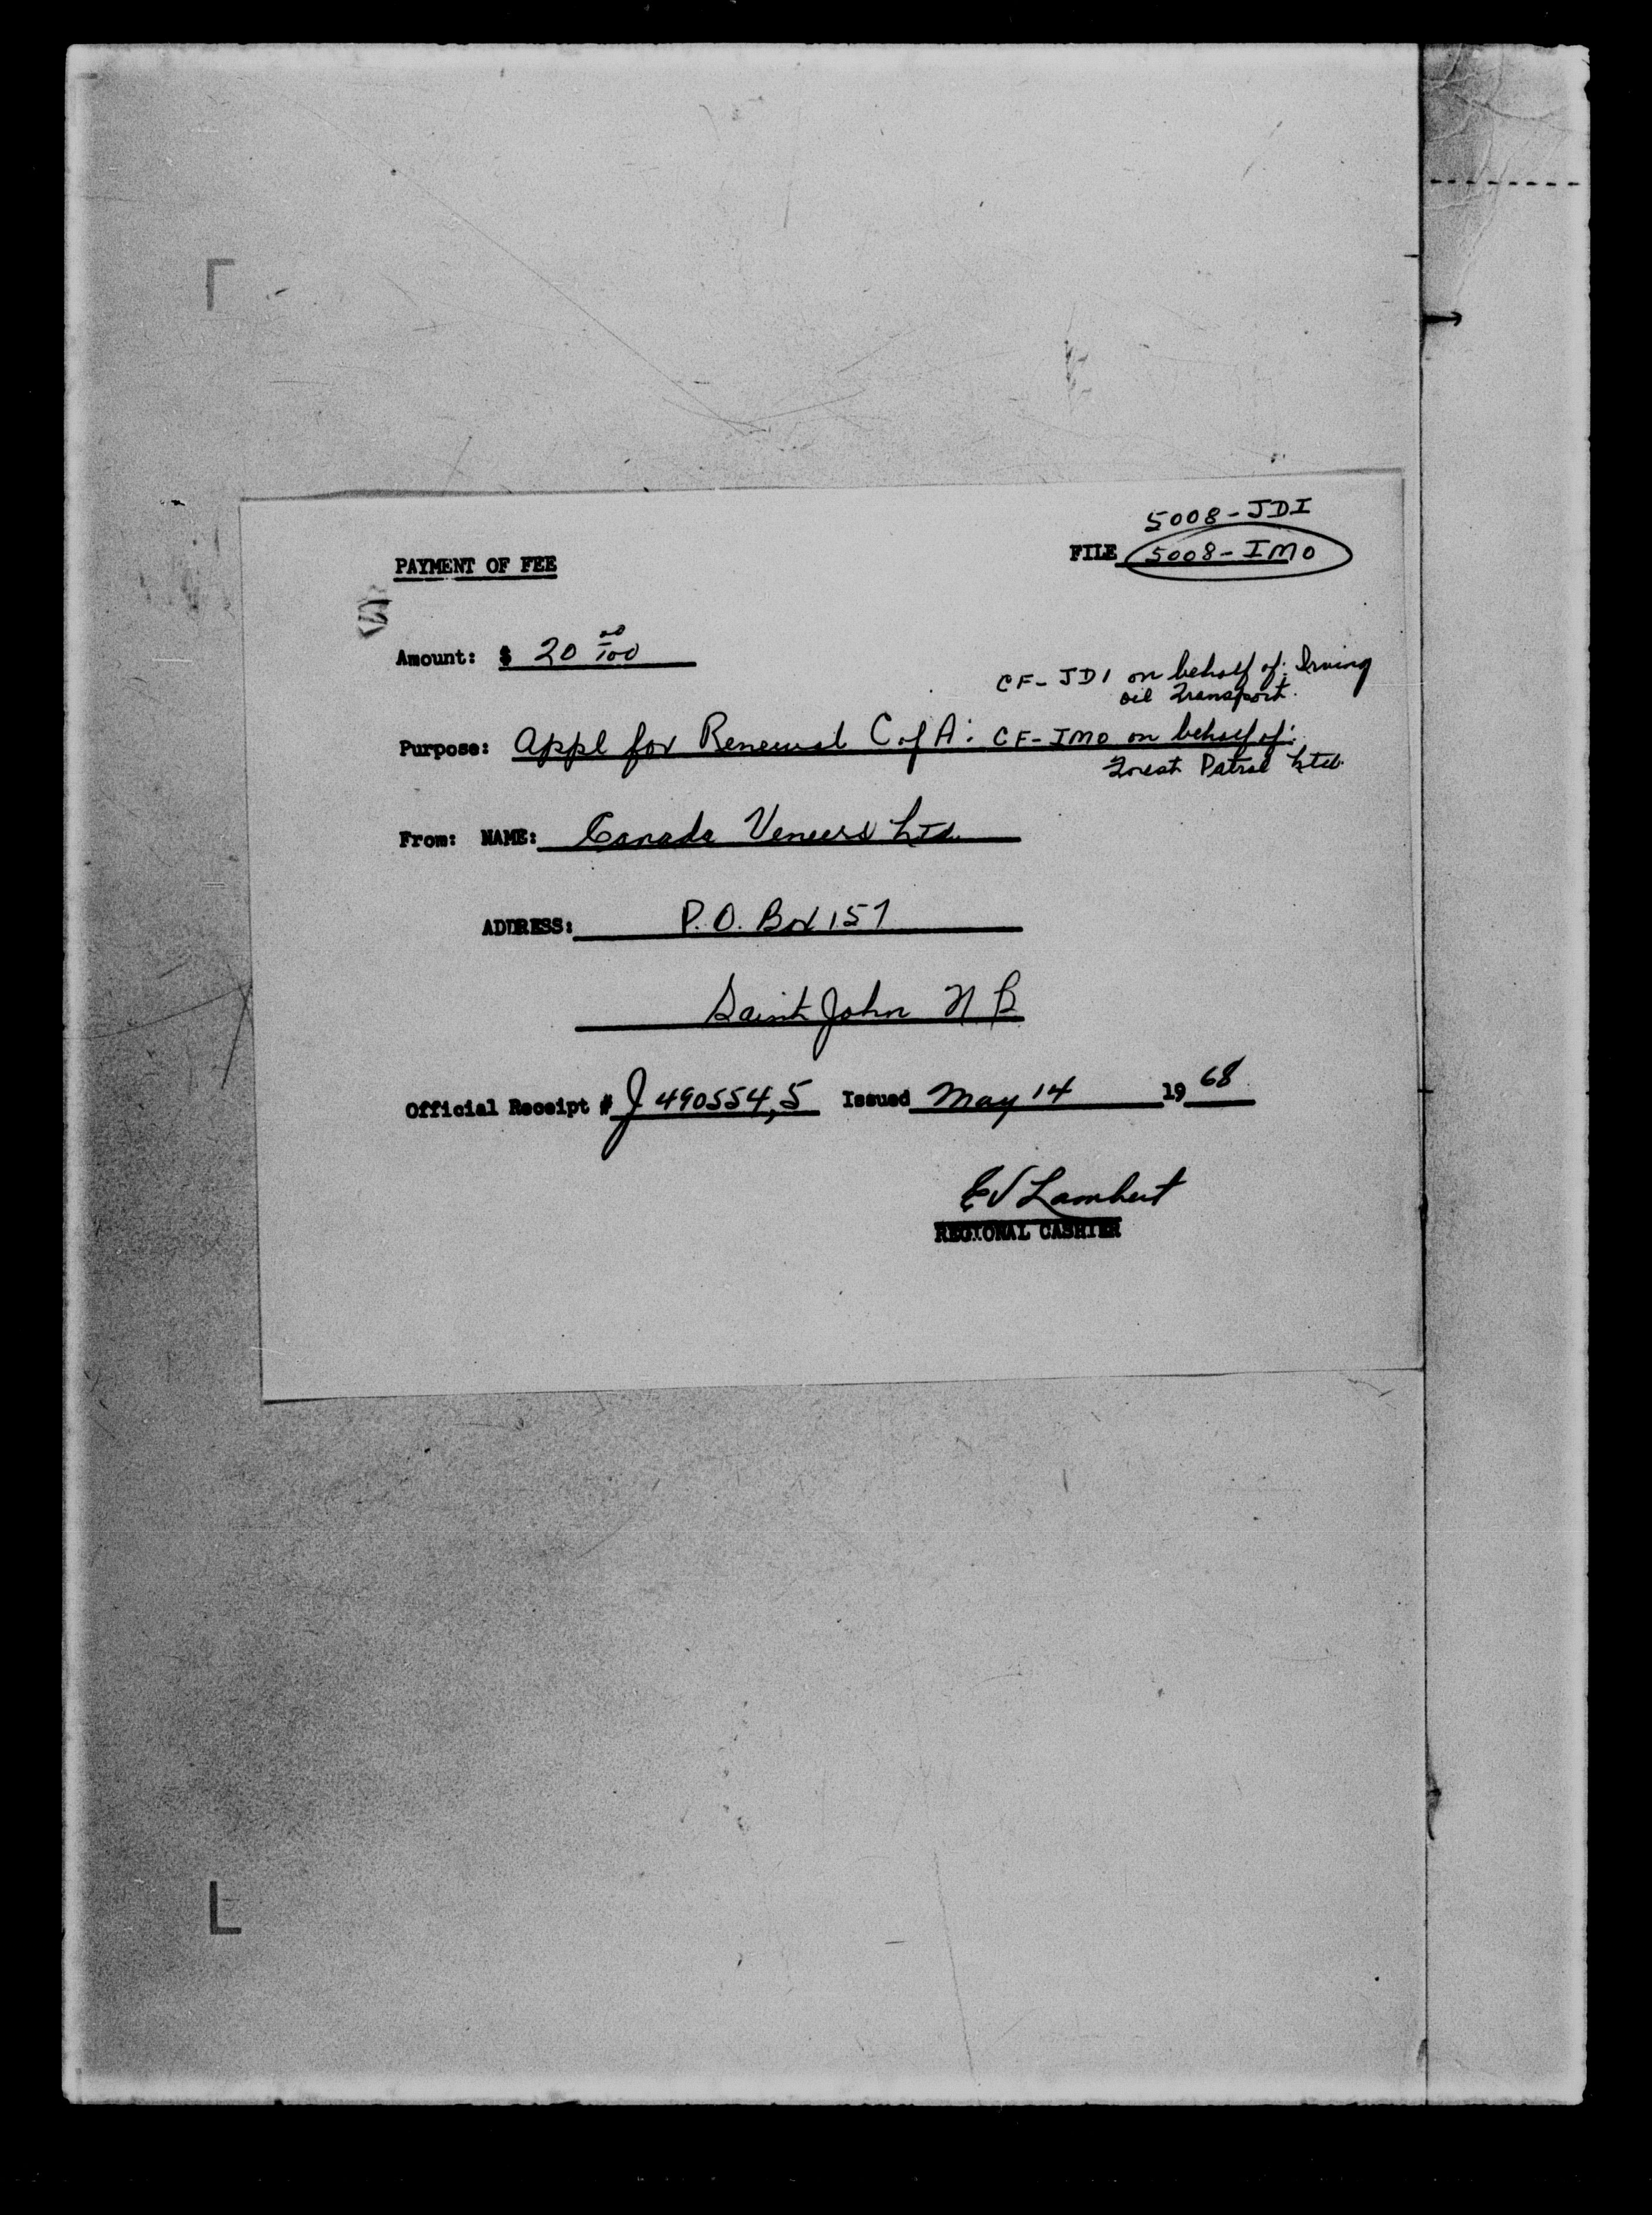 5008-JDI
PAYMENT OF FEE FILE 5008-IMO
Amount: $ 20 00/100
CF-JDI on behalf of: Irving
oil Transport.
Purpose: Appl for Renewal C of A: CF-IMO on behalf of:
Forest Patrol Ltd.
From: NAME: Canada Veneers Ltd.
ADDRESS: P.O. Box 157
Saint John N B
Official Receipt # J 490554,5 Issued May 14 19 68
EV Lambert
REGIONAL CASHIER